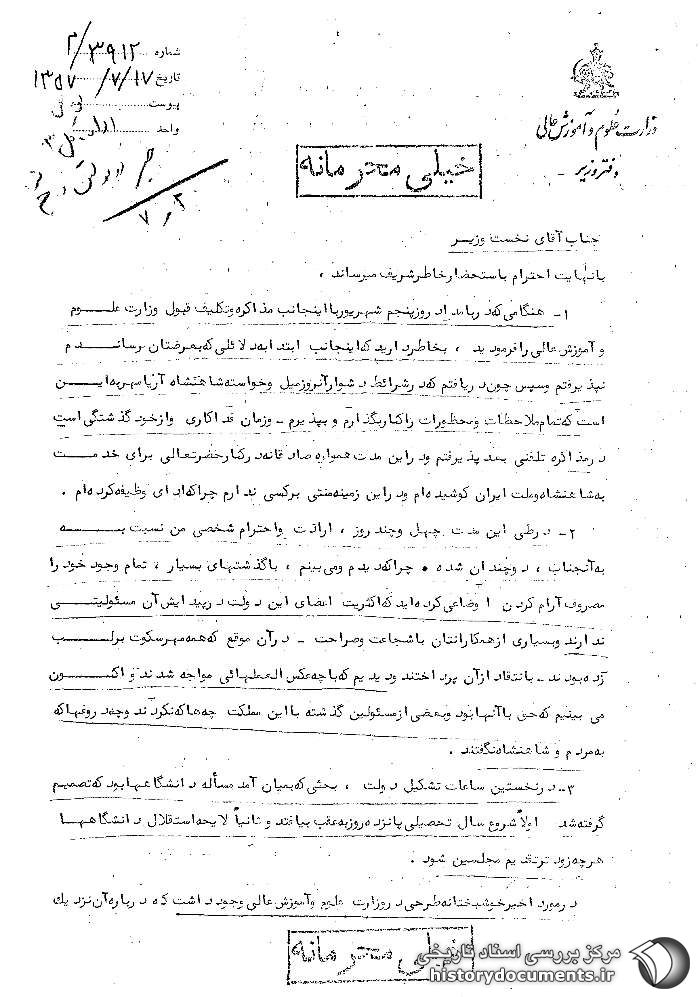 شماره ۳۹۱۲/م
تاریخ ۱۳۵۷/۷/۱۷
پیوست
واحد
وزارت علوم و آموزش عالی
دفتر وزیر -
خیلی محرمانه
جناب آقای نخست وزیر
با نهایت احترام باستحضار خاطر شریف میرساند ،
۱- هنگامی که در بامداد روز پنجم شهریور با اینجانب مذاکره و تکلیف قبول وزارت علوم
و آموزش عالی را فرمودید ، بخاطر دارید که اینجانب ابتدا به دلائلی که بعرضتان رساندم
نپذیرفتم و سپس چون دریافتم که در شرائط دشوار آنروز میل و خواسته شاهنشاه آریامهر به این
است که تمام ملاحظات و محظورات را کنار بگذارم و بپذیرم - وزمان فداکاری و از خود گذشتگی است
در مذاکره تلفنی بعد پذیرفتم و در این مدت همواره صادقانه در کنار حضرتعالی برای خدمت
به شاهنشاه و ملت ایران کوشیده ام و در این زمینه منتی بر کسی ندارم چرا که ادای وظیفه کرده ام .
۲- در طی این مدت چهل و چند روز ، ارادت و احترام شخصی من نسبت به
به آنجناب ، دوچندان شده . چرا که دیدم و می بینم ، با گذشتهای بسیار ، تمام وجود خود را
مصروف آرام کردن اوضاعی کرده اید که اکثریت اعضای این دولت در پیدایش آن مسئولیتی
ندارند و بسیاری از همکارانتان با شجاعت و صراحت - در آن موقع که همه مهر سکوت بر لب
زده بودند - بانتقاد از آن پرداختند و دیدیم که با چه عکس العملهائی مواجه شدند و اکنون
می بینیم که حق با آنها بود و بعضی از مسئولین گذشته با این مملکت چه ها که نکردند و چه دروغها که
به مردم و شاهنشاه نگفتند .
۳- در نخستین ساعات تشکیل دولت ، بحثی که بمیان آمد مسأله دانشگاهها بود که تصمیم
گرفته شد اولاً شروع سال تحصیلی پانزده روز به عقب بیافتد و ثانیاً لایحه استقلال دانشگاهها
هرچه زودتر تقدیم مجلسین شود .
در مورد اخیر خوشبختانه طرحی در وزارت علوم و آموزش عالی وجود داشت که درباره آن نزدیک
خیلی محرمانه
مرکز بررسی اسناد تاریخی
historydocuments.ir